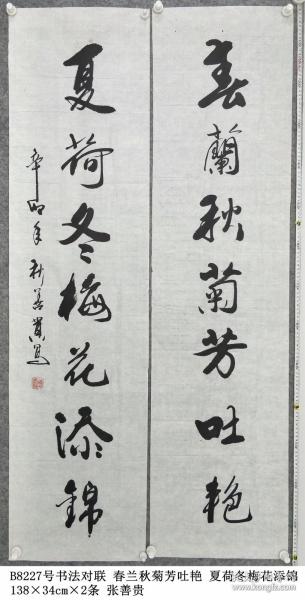 春蘭秋菊芳吐艳
夏荷冬梅花添錦
辛卯年 秋善貴書
B8227号书法对联 春兰秋菊芳吐艳 夏荷冬梅花添锦
138×34cm×2条 张善贵